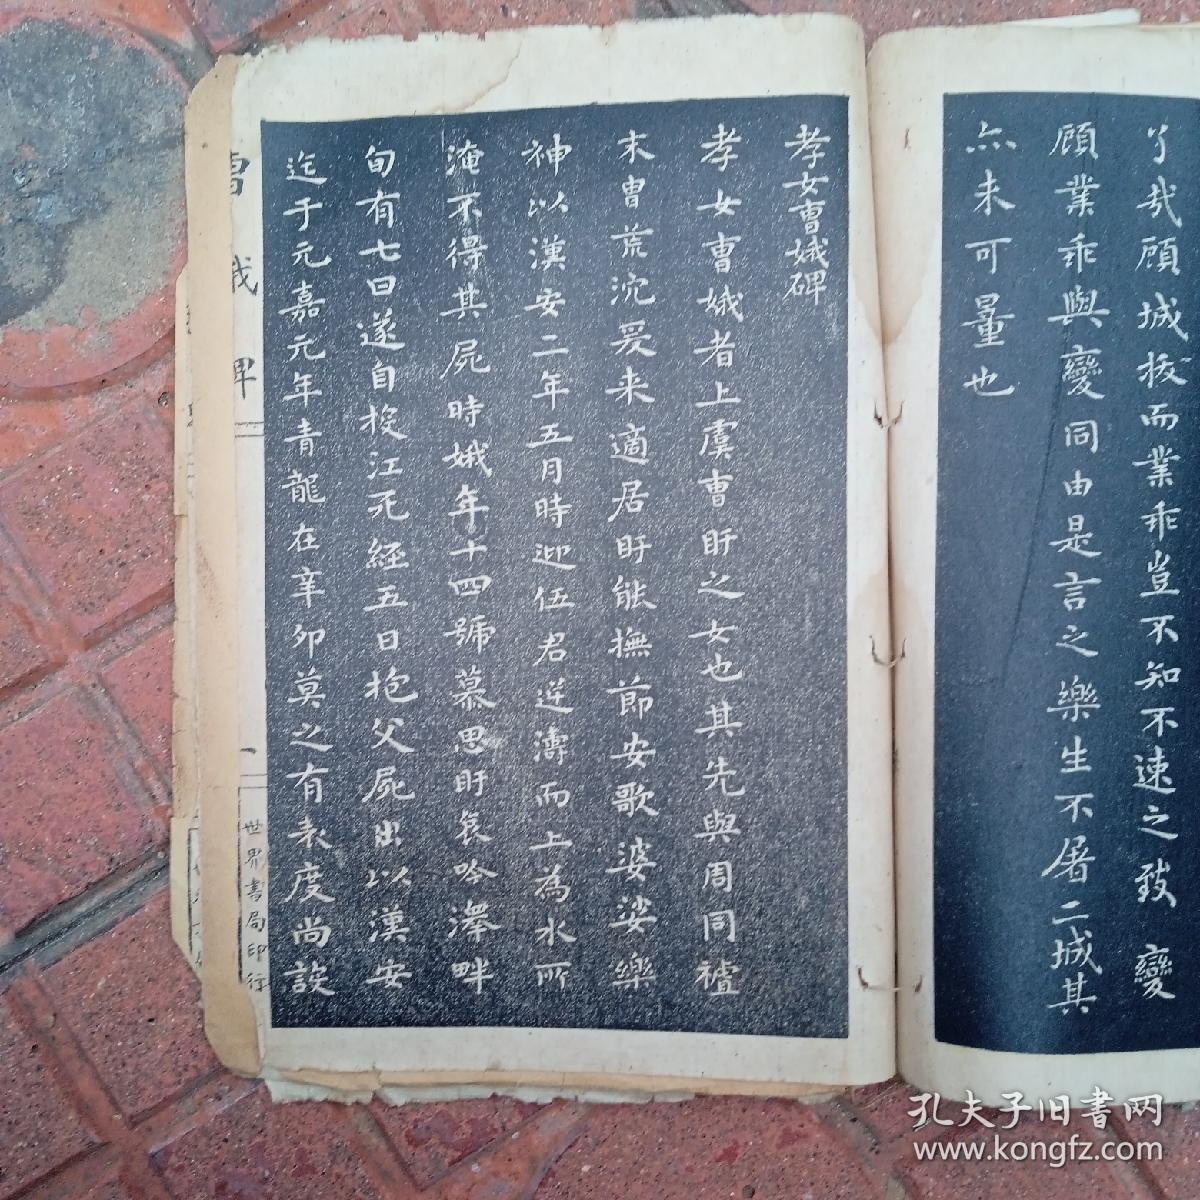 丂哉顧城拔而業乖豈不知不速之致變
顧業乖與變同由是言之樂生不屠二城其
亦未可量也
孝女曹娥碑
孝女曹娥者上虞曹盱之女也其先與周同禮
末曹荒沉爰来適居盱能撫節安歌婆娑樂
神以漢安二年五月時迎伍君逆濤而上為水所
淹不得其屍時娥年十四號慕思盱哀吟澤畔
旬有七日遂自投江死經五日抱父屍出以漢安
迄于元嘉元年青龍在辛卯莫之有表度尚設
曹娥碑
一
世界書局印行
孔夫子旧书网
www.kongfz.com